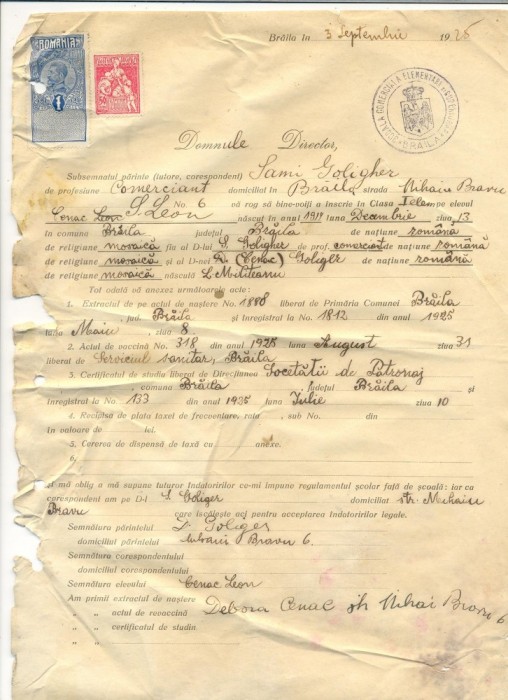 Brăila în 3 Septembrie 1925
ROMÂNIA
1
ȘCOALA COMERCIALĂ ELEMENTARĂ
BRĂILA
Domnule Director,
Subsemnatul părinte (tutore, corespondent) Sami Goligher
de profesiune Comerciant domiciliat în Brăila strada Mihaiu Bravu
No. 6 vă rog să bine-voiți a înscrie în Clasa I elem pe elevul
Cenac Leon S. Leon născut în anul 1911 luna Decembrie ziua 13
în comuna Brăila județul Brăila de națiune română
de religiune mozaică fiu al D-lui S. Goligher de prof. comerciant de națiune română
de religiune mozaică și al D-nei D. (Cenac) Goliger de națiune română
de religiune mozaică născută L. Militeanu
Tot odată vă anexez următoarele acte:
1. Extractul de pe actul de naștere No. 1888 liberat de Primăria Comunei Brăila
jud. Brăila și înregistrat la No. 1812 din anul 1925
luna Maiu ziua 8
2. Actul de vaccină No. 318 din anul 1925 luna August ziua 31
liberat de Serviciul sanitar, Brăila
3. Certificatul de studii liberat de Direcțiunea Societății de Patronaj
comuna Brăila județul Brăila și
înregistrat la No. 133 din anul 1925 luna Iulie ziua 10
4. Recipisa de plata taxei de frecventare, rata sub No. din
în valoare de lei.
5. Cererea de dispensă de taxă cu anexe.
6.
și mă oblig a mă supune tuturor îndatoririlor ce-mi impune regulamentul școlar față de școală: iar ca
corespondent am pe D-l S. Goliger domiciliat str. Mihaiu
Bravu care iscălește aci pentru acceptarea îndatoririlor legale.
Semnătura părintelui S. Goliger
domiciliul părintelui Bravu 6.
Semnătura corespondentului
domiciliul corespondentului
Semnătura elevului Cenac Leon
Am primit extractul de naștere
„ „ actul de revaccină Debora Cenac str Mihai Bravu 6
„ „ certificatul de studiu